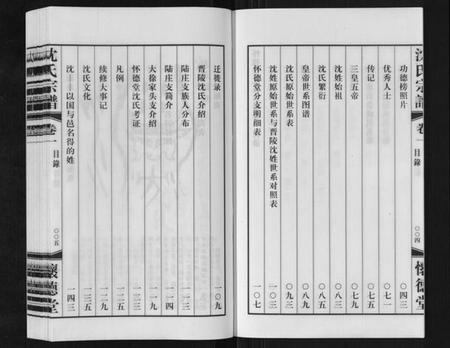 沈氏宗谱 卷一 目錄 〇〇四 懷德堂
功德榜照片 〇四三
优秀人士 〇六一
传记 〇七五
三皇五帝 〇七七
沈姓始祖 〇八三
沈氏繁衍 〇八五
皇帝世系图谱 〇八九
沈氏原始世系表 〇九三
沈姓原始世系与晋陵沈姓世系对照表 一〇三
怀德堂分支明细表 一〇七
迁徙录 一〇九
晋陵沈氏介绍
陆庄支族人分布
陆庄支简介
大徐家头支介绍
怀德堂沈氏考证
凡例 一二九
续修大事记
沈氏文化 一三五
沈——以国与邑名得的姓 一四三
沈氏宗谱 卷一 目錄 〇〇五 懷德堂